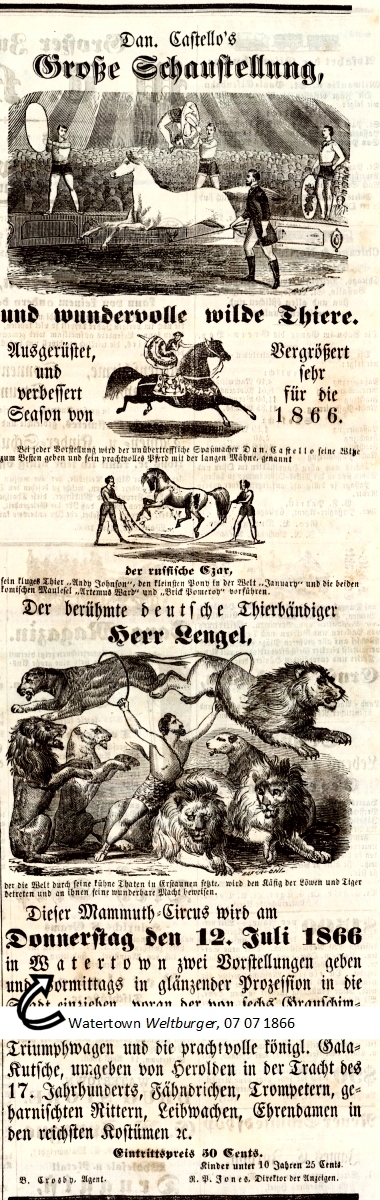 Dan. Castello's
Große Schaustellung,
und wundervolle wilde Thiere.
Ausgerüstet,
und
verbessert
Season von
Vergrößert
sehr
für die
1866.
Bei jeder Vorstellung wird der unübertreffliche Spaßmacher Dan. Castello seine Witze
zum Besten geben und sein prachtvolles Pferd mit der langen Mähne, genannt
der russische Czar,
sein kluges Thier „Andy Johnson“, den kleinsten Pony in der Welt „January“ und die beiden
komischen Maulesel „Artemus Ward“ und „Brick Pomeroy“ vorführen.
Der berühmte deutsche Thierbändiger
Herr Lengel,
der die Welt durch seine kühne Thaten in Erstaunen setzte, wird den Käfig der Löwen und Tiger
betreten und an ihnen seine wunderbare Macht beweisen.
Dieser Mammuth-Circus wird am
Donnerstag den 12. Juli 1866
in Watertown zwei Vorstellungen geben
und Vormittags in glänzender Prozession in die
Stadt einziehen, voran der von sechs
Watertown Weltburger, 07 07 1866
Triumphwagen und die prachtvolle königl. Gala-
Kutsche, umgeben von Herolden in der Tracht des
17. Jahrhunderts, Fähndrichen, Trompetern, ge-
harnischten Rittern, Leibwachen, Ehrendamen in
den reichsten Kostümen ꝛc.
Eintrittspreis 50 Cents.
Kinder unter 10 Jahren 25 Cents.
B. Crosby, Agent.
R. P. Jones, Direktor der Anzeigen.